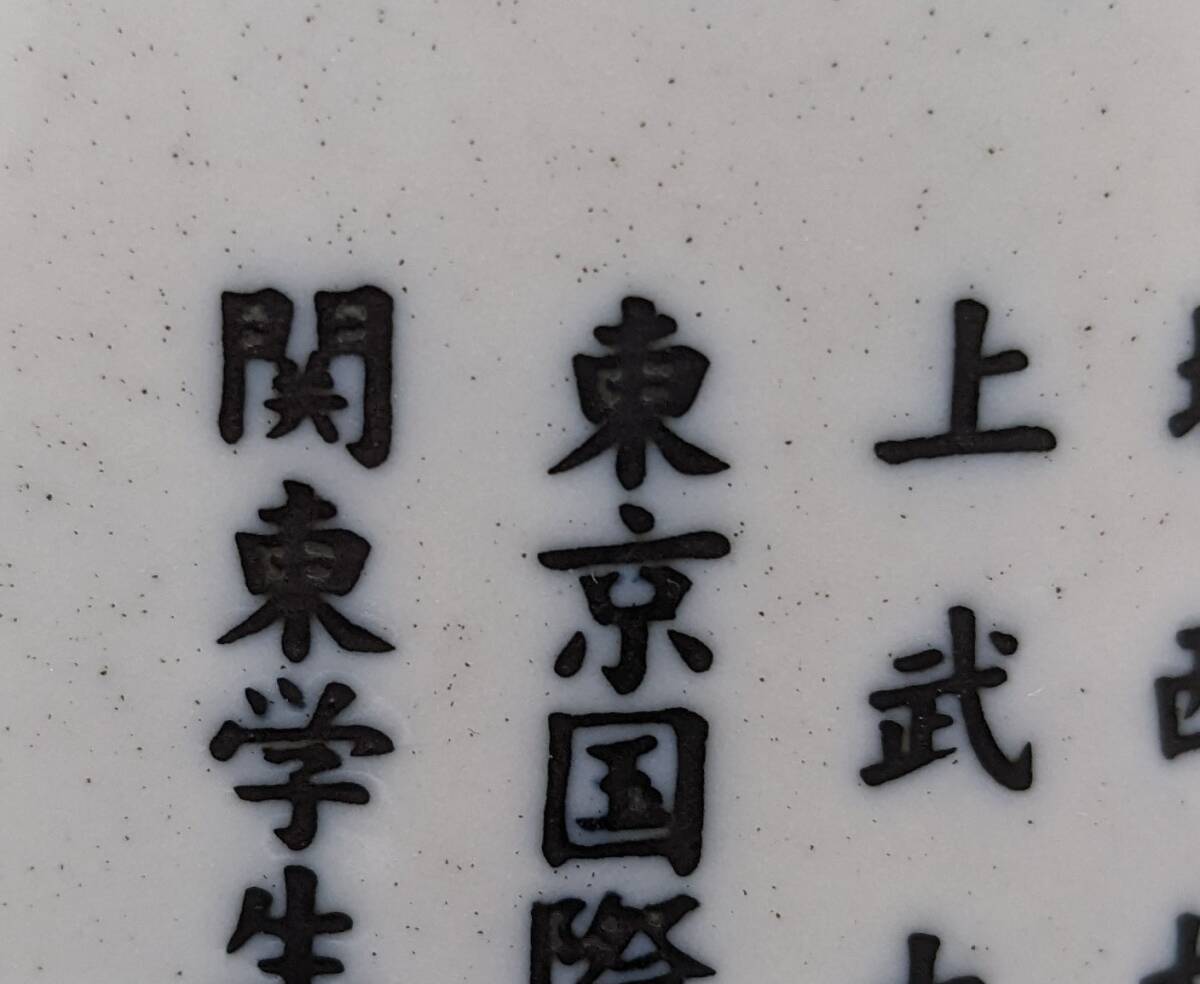 上武
東京国際
関東学生